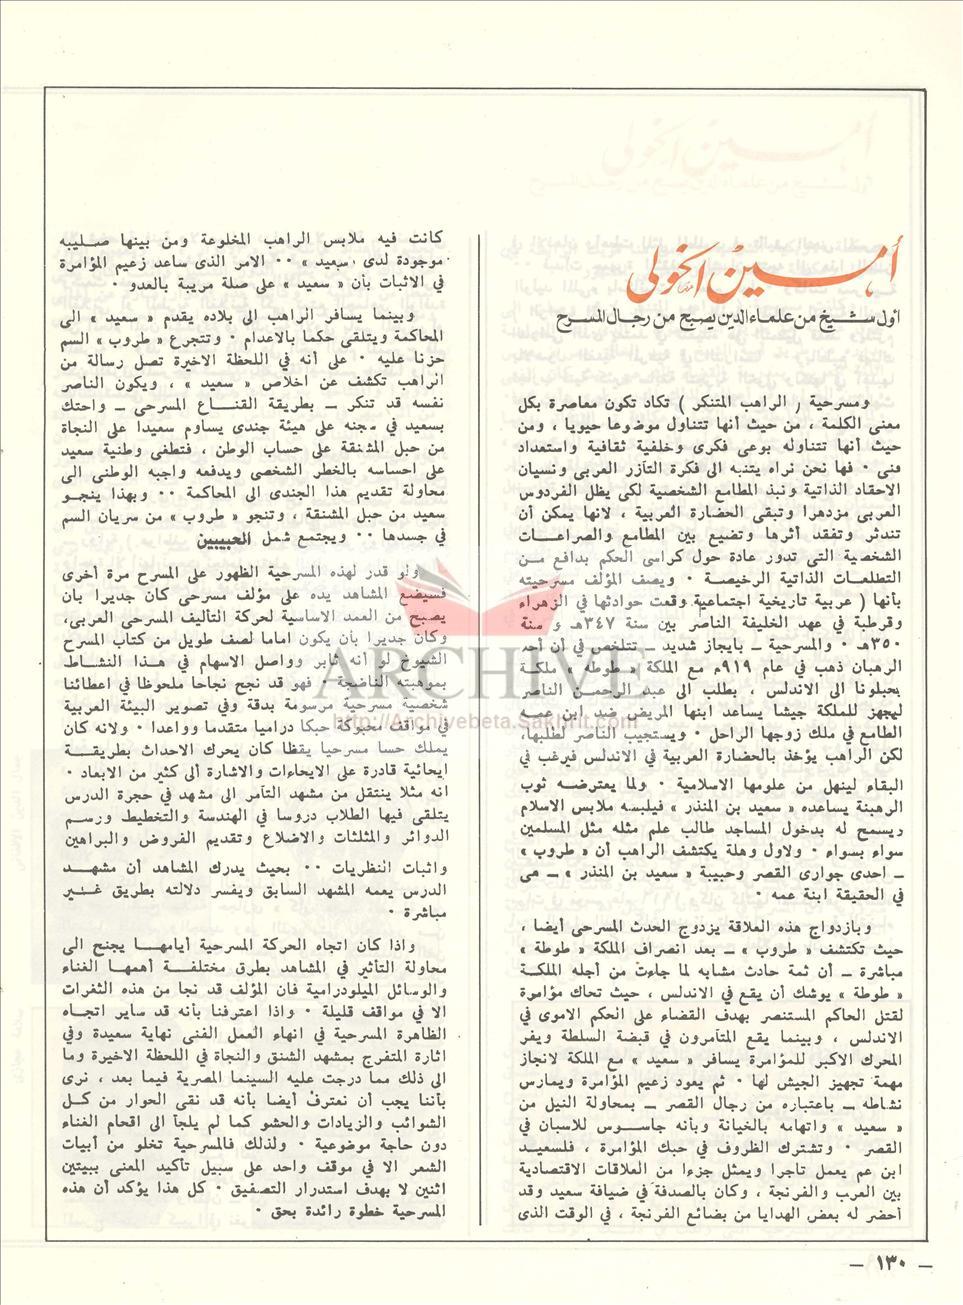 أمين الخولي
أول شيخ من علماء الدين يصبح من رجال المسرح
ومسرحية ( الراهب المتنكر ) تكاد تكون معاصرة بكل
معنى الكلمة ، من حيث أنها تتناول موضوعا حيويا ، ومن
حيث أنها تتناوله بوعى فكرى وخلفية ثقافية واستعداد
فنى ٠ فها نحن نراه يتنبه الى فكرة التآزر العربى ونسيان
الاحقاد الذاتية ونبذ المطامع الشخصية لكى يظل الفردوس
العربى مزدهرا وتبقى الحضارة العربية ، لانها يمكن أن
تندثر وتفقد أثرها وتضيع بين المطامع والصراعات
الشخصية التى تدور عادة حول كراسى الحكم بدافع من
التطلعات الذاتية الرخيصة ٠ ويصف المؤلف مسرحيته
بأنها ( عربية تاريخية اجتماعية وقعت حوادثها في الزهراء
وقرطبة في عهد الخليفة الناصر بين سنة ٣٤٧هـ و سنة
٣٥٠هـ ٠ والمسرحية ـ بايجاز شديد ـ تتلخص في أن أحد
الرهبان ذهب في عام ٩١٩م مع الملكة « طوطه » ملكة
يحبلونا الى الاندلس ، بطلب الى عبد الرحمن الناصر
ليجهز للملكة جيشا يساعد ابنها المريض ضد ابن عمه
الطامع في ملك زوجها الراحل ٠ ويستجيب الناصر لطلبها،
لكن الراهب يؤخذ بالحضارة العربية في الاندلس فيرغب في
البقاء لينهل من علومها الاسلامية ٠ ولما يعترضه ثوب
الرهبنة يساعده « سعيد بن المنذر » فيلبسه ملابس الاسلام
ويسمح له بدخول المساجد طالب علم مثله مثل المسلمين
سواء بسواء ٠ ولاول وهلة يكتشف الراهب أن « طروب »
ـ احدى جوارى القصر وحبيبة « سعيد بن المنذر » ـ هى
في الحقيقة ابنة عمه ٠
وبازدواج هذه العلاقة يزدوج الحدث المسرحى أيضا ،
حيث تكتشف « طروب » ـ بعد انصراف الملكة « طوطة »
مباشرة ـ أن ثمة حادث مشابه لما جاءت من أجله الملكة
« طوطة » يوشك أن يقع في الاندلس ، حيث تحاك مؤامرة
لقتل الحاكم المستنصر بهدف القضاء على الحكم الاموى في
الاندلس ، وبينما يقع المتآمرون في قبضة السلطة ويفر
المحرك الاكبر للمؤامرة يسافر « سعيد » مع الملكة لانجاز
مهمة تجهيز الجيش لها ٠ ثم يعود زعيم المؤامرة ويمارس
نشاطه ـ باعتباره من رجال القصر ـ بمحاولة النيل من
« سعيد » واتهامه بالخيانة وبأنه جاسوس للاسبان في
القصر ٠ وتشترك الظروف في حبك المؤامرة ، فلسعيد
ابن عم يعمل تاجرا ويمثل جزءا من العلاقات الاقتصادية
بين العرب والفرنجة ، وكان بالصدفة في ضيافة سعيد وقد
أحضر له بعض الهدايا من بضائع الفرنجة ، في الوقت الذى
كانت فيه ملابس الراهب المخلوعة ومن بينها صليبه
موجودة لدى « سعيد » ٠٠ الامر الذى ساعد زعيم المؤامرة
في الاثبات بأن « سعيد » على صلة مريبة بالعدو ٠
وبينما يسافر الراهب الى بلاده يقدم « سعيد » الى
المحاكمة ويتلقى حكما بالاعدام ٠ وتتجرع « طروب » السم
حزنا عليه ٠ على أنه في اللحظة الاخيرة تصل رسالة من
الراهب تكشف عن اخلاص « سعيد » ، ويكون الناصر
نفسه قد تنكر ـ بطريقة القناع المسرحى ـ واحتك
بسعيد في سجنه على هيئة جندى يساوم سعيدا على النجاة
من حبل المشنقة على حساب الوطن ، فتطغى وطنية سعيد
على احساسه بالخطر الشخصى ويدفعه واجبه الوطنى الى
محاولة تقديم هذا الجندى الى المحاكمة ٠٠ وبهذا ينجو
سعيد من حبل المشنقة ، وتنجو « طروب » من سريان السم
في جسدها ٠٠ ويجتمع شمل الحبيبين
ولو قدر لهذه المسرحية الظهور على المسرح مرة أخرى
فسيضع المشاهد يده على مؤلف مسرحى كان جديرا بان
يصبح من العمد الاساسية لحركة التأليف المسرحى العربى،
وكان جديرا بأن يكون اماما لصف طويل من كتاب المسرح
الشيوخ لو أنه ثابر وواصل الاسهام في هذا النشاط
بموهبته الناضجة ٠ فهو قد نجح نجاحا ملحوظا في اعطائنا
شخصية مسرحية مرسومة بدقة وفي تصوير البيئة العربية
في مواقف محبوكة حبكا دراميا متقدما وواعدا ٠ ولانه كان
يملك حسا مسرحيا يقظا كان يحرك الاحداث بطريقة
ايحائية قادرة على الايحاءات والاشارة ألى كثير من الابعاد ٠
انه مثلا ينتقل من مشهد التآمر الى مشهد في حجرة الدرس
يتلقى فيها الطلاب دروسا في الهندسة والتخطيط ورسم
الدوائر والمثلثات والاضلاع وتقديم الفروض والبراهين
واثبات النظريات ٠٠ بحيث يدرك المشاهد أن مشهد
الدرس يعمه المشهد السابق ويفسر دلالته بطريق غير
مباشرة ٠
واذا كان اتجاه الحركة المسرحية أيامها يجنح الى
محاولة التأثير في المشاهد بطرق مختلفة أهمها الغناء
والوسائل الميلودرامية فان المؤلف قد نجا من هذه الثغرات
الا في مواقف قليلة ٠ واذا اعترفنا بأنه قد ساير اتجاه
الظاهرة المسرحية في انهاء العمل الفنى نهاية سعيدة وفي
اثارة المتفرج بمشهد الشنق والنجاة في اللحظة الاخيرة وما
الى ذلك مما درجت عليه السينما المصرية فيما بعد ، نرى
بأننا يجب أن نعترف أيضا بأنه قد نقى الحوار من كل
الشوائب والزيادات والحشو كما لم يلجأ الى اقحام الغناء
دون حاجة موضوعية ٠ ولذلك فالمسرحية تخلو من أبيات
الشعر الا في موقف واحد على سبيل تأكيد المعنى ببيتين
اثنين لا بهدف استدرار التصفيق ٠ كل هذا يؤكد أن هذه
المسرحية خطوة رائدة بحق ٠
ARCHIVE
http://Archivebeta.Sakhrit.com
ـ ١٣٠ ـ